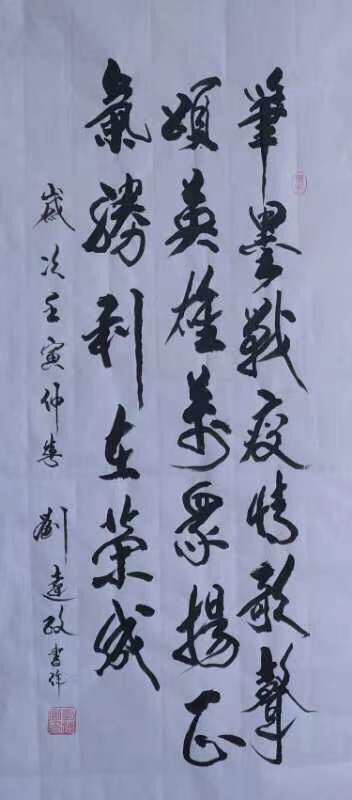 筆墨戰疫情歌聲
頌英雄萬眾揚正
氣勝利在榮成
歲次壬寅仲春 劉達政書作